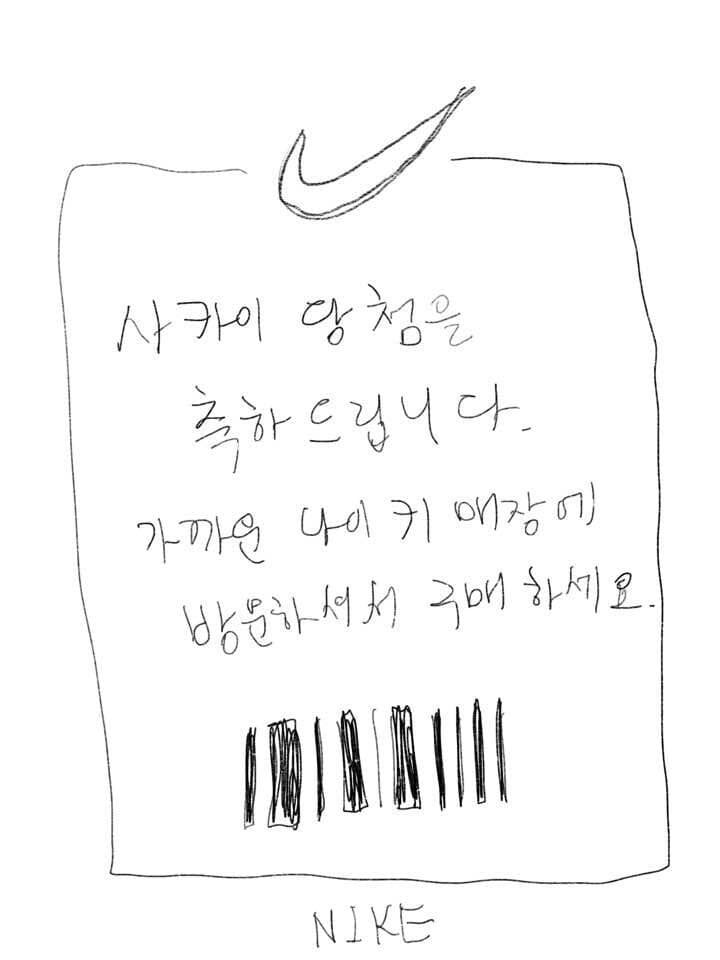 사카이 당첨을
축하드립니다.
가까운 나이키 매장에
방문하셔서 구매하세요.
NIKE